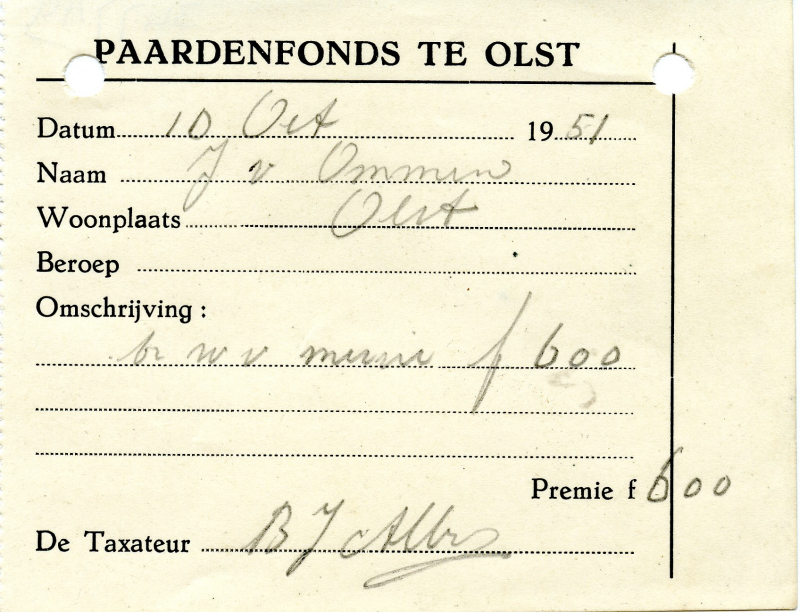 PAARDENFONDS TE OLST
Datum 10 Oct 1951
Naam J v Ommen
Woonplaats Olst
Beroep
Omschrijving :
br w v merrie f 600
Premie f 600
De Taxateur B J Albers